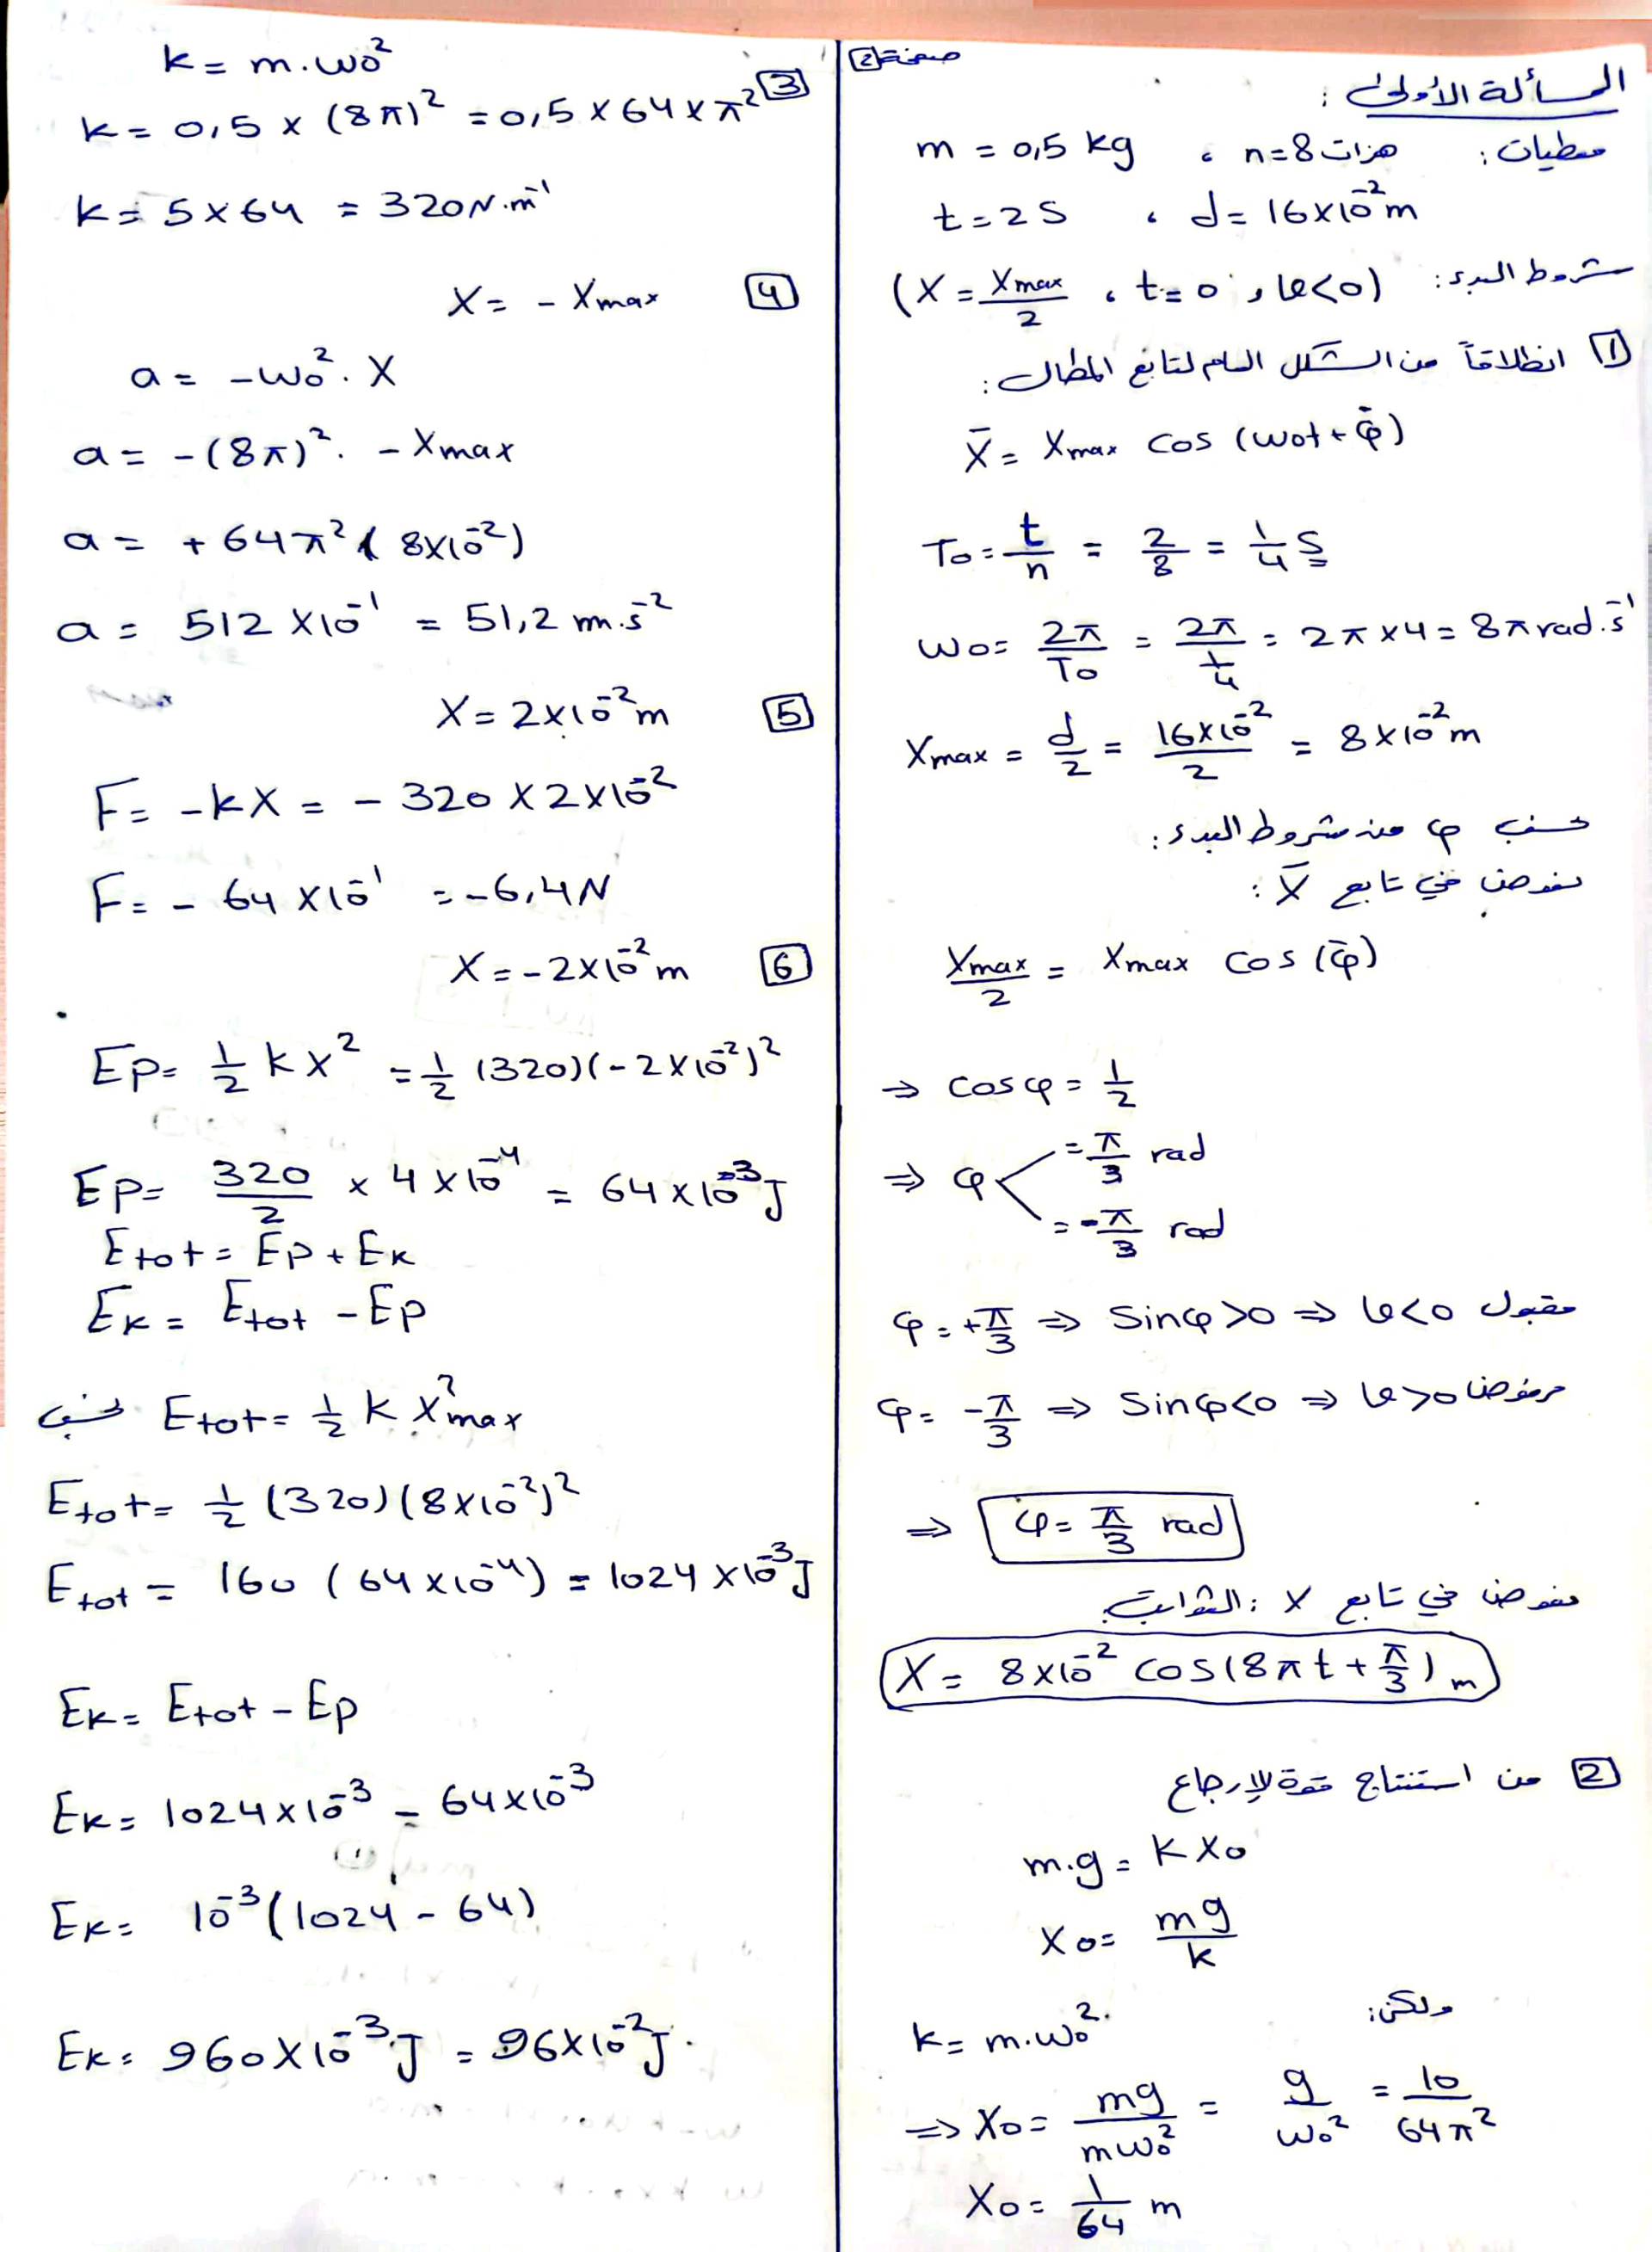 صفحة 2
المسألة الأولى:
معطيات: m = 0,5 kg ، n=8 هزات
t = 2 S ، d = 16×10⁻² m
شروط البدء: (X = Xmax/2 ، t=0 ، v<0)
1 انطلاقاً من الشكل العام لتابع المطال:
X̄ = Xmax cos (ω₀t + φ̄)
T₀ = t/n = 2/8 = 1/4 S
ω₀ = 2π/T₀ = 2π/(1/4) = 2π×4 = 8π rad.s⁻¹
Xmax = d/2 = 16×10⁻²/2 = 8×10⁻² m
نحسب φ من شروط البدء:
نعوض في تابع X̄:
Xmax/2 = Xmax cos (φ̄)
⇒ cosφ = 1/2
⇒ φ = π/3 rad
= -π/3 rad
φ = +π/3 ⇒ Sinφ>0 ⇒ v<0 مقبول
φ = -π/3 ⇒ Sinφ<0 ⇒ v>0 مرفوض
⇒ φ = π/3 rad
نعوض في تابع X الثوابت:
X = 8×10⁻² cos(8πt + π/3) m
2 من استنتاج قوة الإرجاع
m.g = K X₀
X₀ = mg/k
ولكن:
k = m.ω₀².
⇒ X₀ = mg/mω₀² = g/ω₀² = 10/64π²
X₀ = 1/64 m
k = m.ω₀²
3
k = 0,5 × (8π)² = 0,5 × 64 × π²
k = 5×64 = 320 N.m⁻¹
4 X = - Xmax
a = -ω₀². X
a = -(8π)². - Xmax
a = + 64π² (8×10⁻²)
a = 512 ×10⁻¹ = 51,2 m.s⁻²
5 X = 2×10⁻² m
F = -kX = - 320 × 2×10⁻²
F = - 64 ×10⁻¹ = -6,4 N
6 X = -2×10⁻² m
Ep = 1/2 k x² = 1/2 (320)(-2×10⁻²)²
Ep = 320/2 × 4×10⁻⁴ = 64×10⁻³ J
Etot = Ep + Ek
Ek = Etot - Ep
نحسب Etot = 1/2 k X²max
Etot = 1/2 (320)(8×10⁻²)²
Etot = 160 (64×10⁻⁴) = 1024 ×10⁻³ J
Ek = Etot - Ep
Ek = 1024×10⁻³ - 64×10⁻³
Ek = 10⁻³(1024 - 64)
Ek = 960×10⁻³ J = 96×10⁻² J.